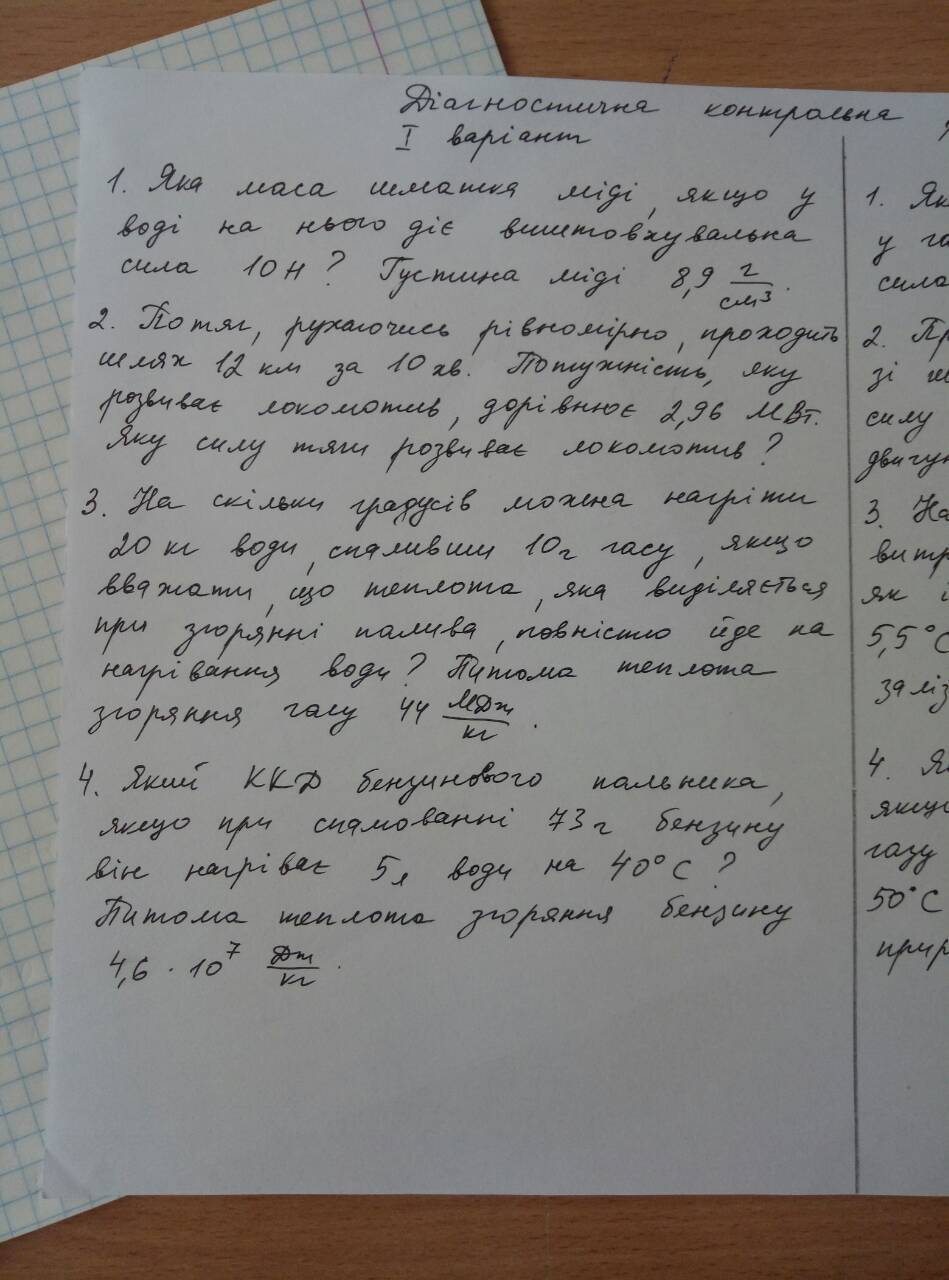 Діагностична контрольна
I варіант
1. Яка маса шматка міді, якщо у
воді на нього діє виштовхувальна
сила 10 Н? Густина міді 8,9 г/см³.
2. Потяг, рухаючись рівномірно, проходить
шлях 12 км за 10 хв. Потужність, яку
розвиває локомотив, дорівнює 2,96 МВт.
Яку силу тяги розвиває локомотив?
3. На скільки градусів можна нагріти
20 кг води, спаливши 10 г гасу, якщо
вважати, що теплота, яка виділяється
при згорянні палива, повністю йде на
нагрівання води? Питома теплота
згоряння гасу 44 МДж/кг.
4. Який ККД бензинового пальника,
якщо при спалюванні 73 г бензину
він нагріває 5 л води на 40°C?
Питома теплота згоряння бензину
4,6 · 10⁷ Дж/кг.
1. Як
у га
сила
2. Пр
зі ш
силу
двигун
3. На
витр
як
5,5°C
заліз
4. Я
якщо
газу
50°C
прир